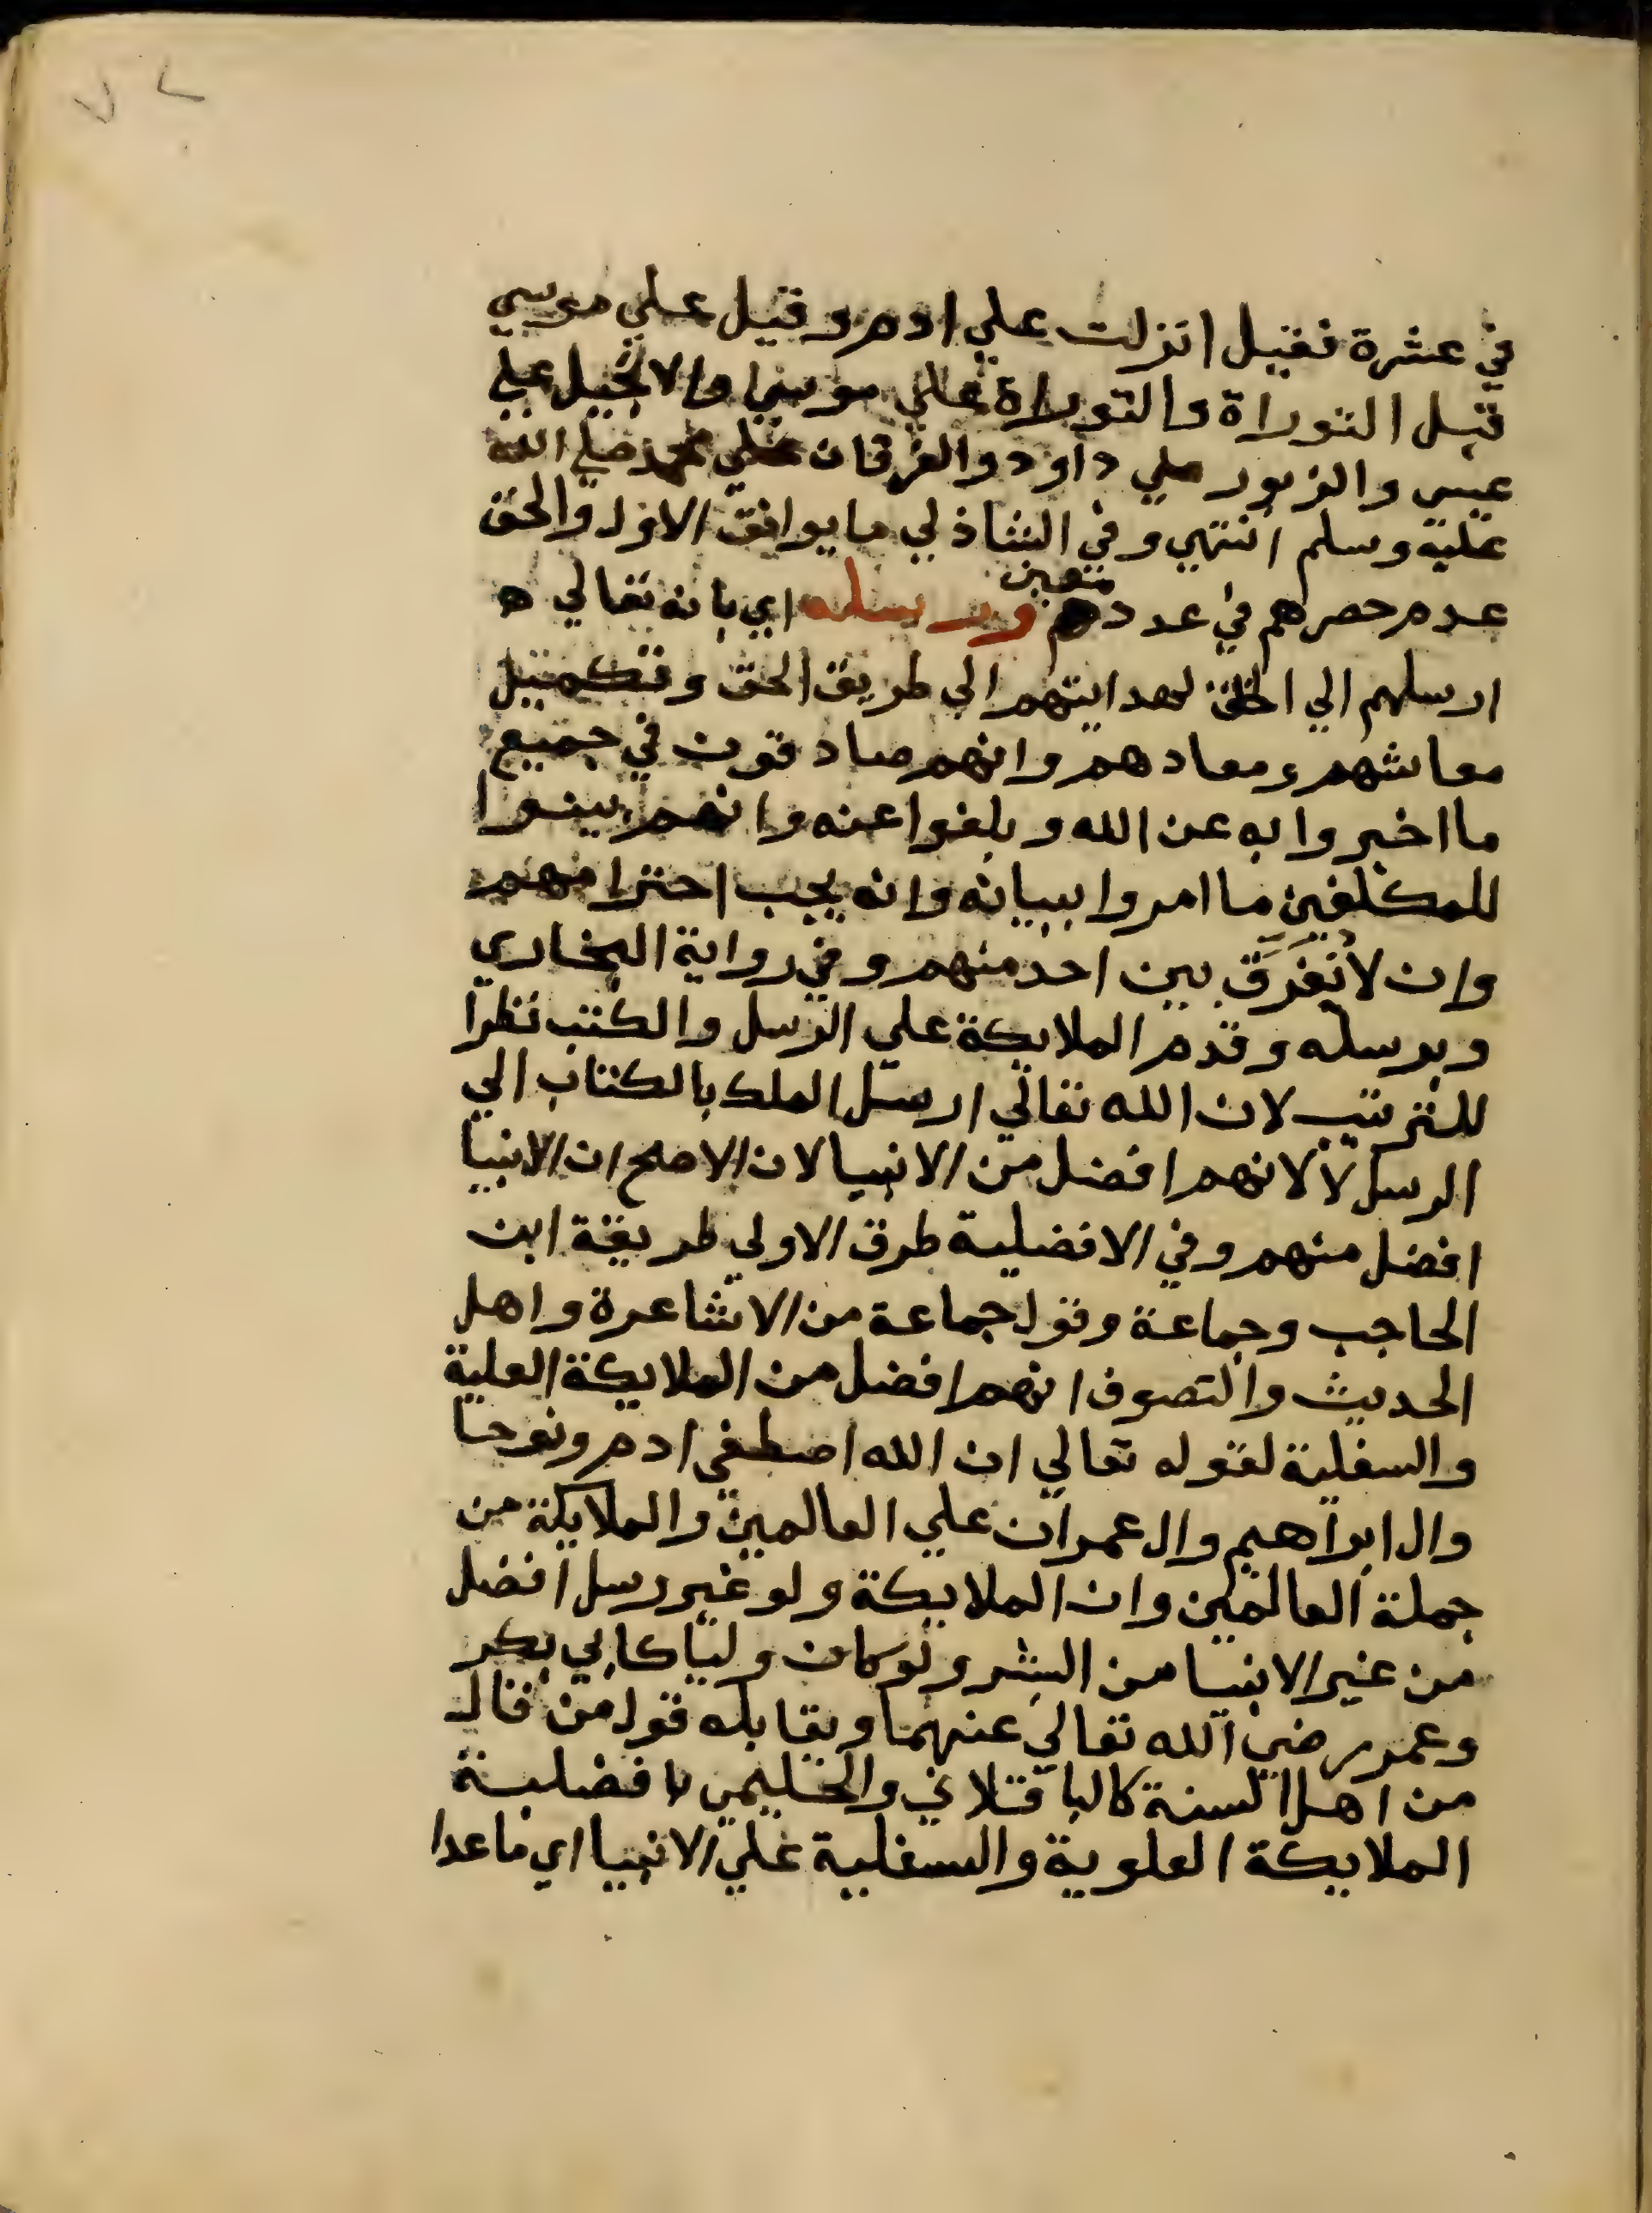 في عشرة فقيل انزلت علي ادم وقيل علي موسي
قبل التوراة والتوراة علي موسي والانجيل علي
عيسي والزبور علي داود والفرقان علي محمد صلي الله
عليه وسلم انتهي وفي الشاذلي ما يوافق الاول والحق
عدم حصرهم في عدد معين ورسله اي بانه تعالي ه
ارسلهم الي الخلق لهدايتهم الي طريق الحق وتكميل
معاشهم ومعادهم وانهم صادقون في جميع
ما اخبروا به عن الله وبلغوا عنه وانهم بينوا
للمكلفين ما امروا ببيانه وانه يجب احترامهم
وان لا نفرق بين احد منهم وفي رواية البخاري
وبرسله وقدم الملايكة علي الرسل والكتب نظرا
للترتيب لان الله تعالي ارسل الملك بالكتاب الي
الرسل لا لانهم افضل من الانبيا لان الاصح ان الانبيا
افضل منهم وفي الافضلية طرق الاولي طريقة ابن
الحاجب وجماعة وقول جماعة من الاشاعرة واهل
الحديث والتصوف انهم افضل من الملايكة العلية
والسفلية لقوله تعالي ان الله اصطفي ادم ونوحا
وال ابراهيم وال عمران علي العالمين والملايكة من
جملة العالمين وان الملايكة ولو غير رسل افضل
من غير الانبيا من البشر ولو كان وليا كابي بكر
وعمر رضي الله تعالي عنهما ويقابله قول من قال
من اهل السنة كالباقلاني والحليمي بافضلية
الملايكة العلوية والسفلية علي الانبيا اي ما عدا